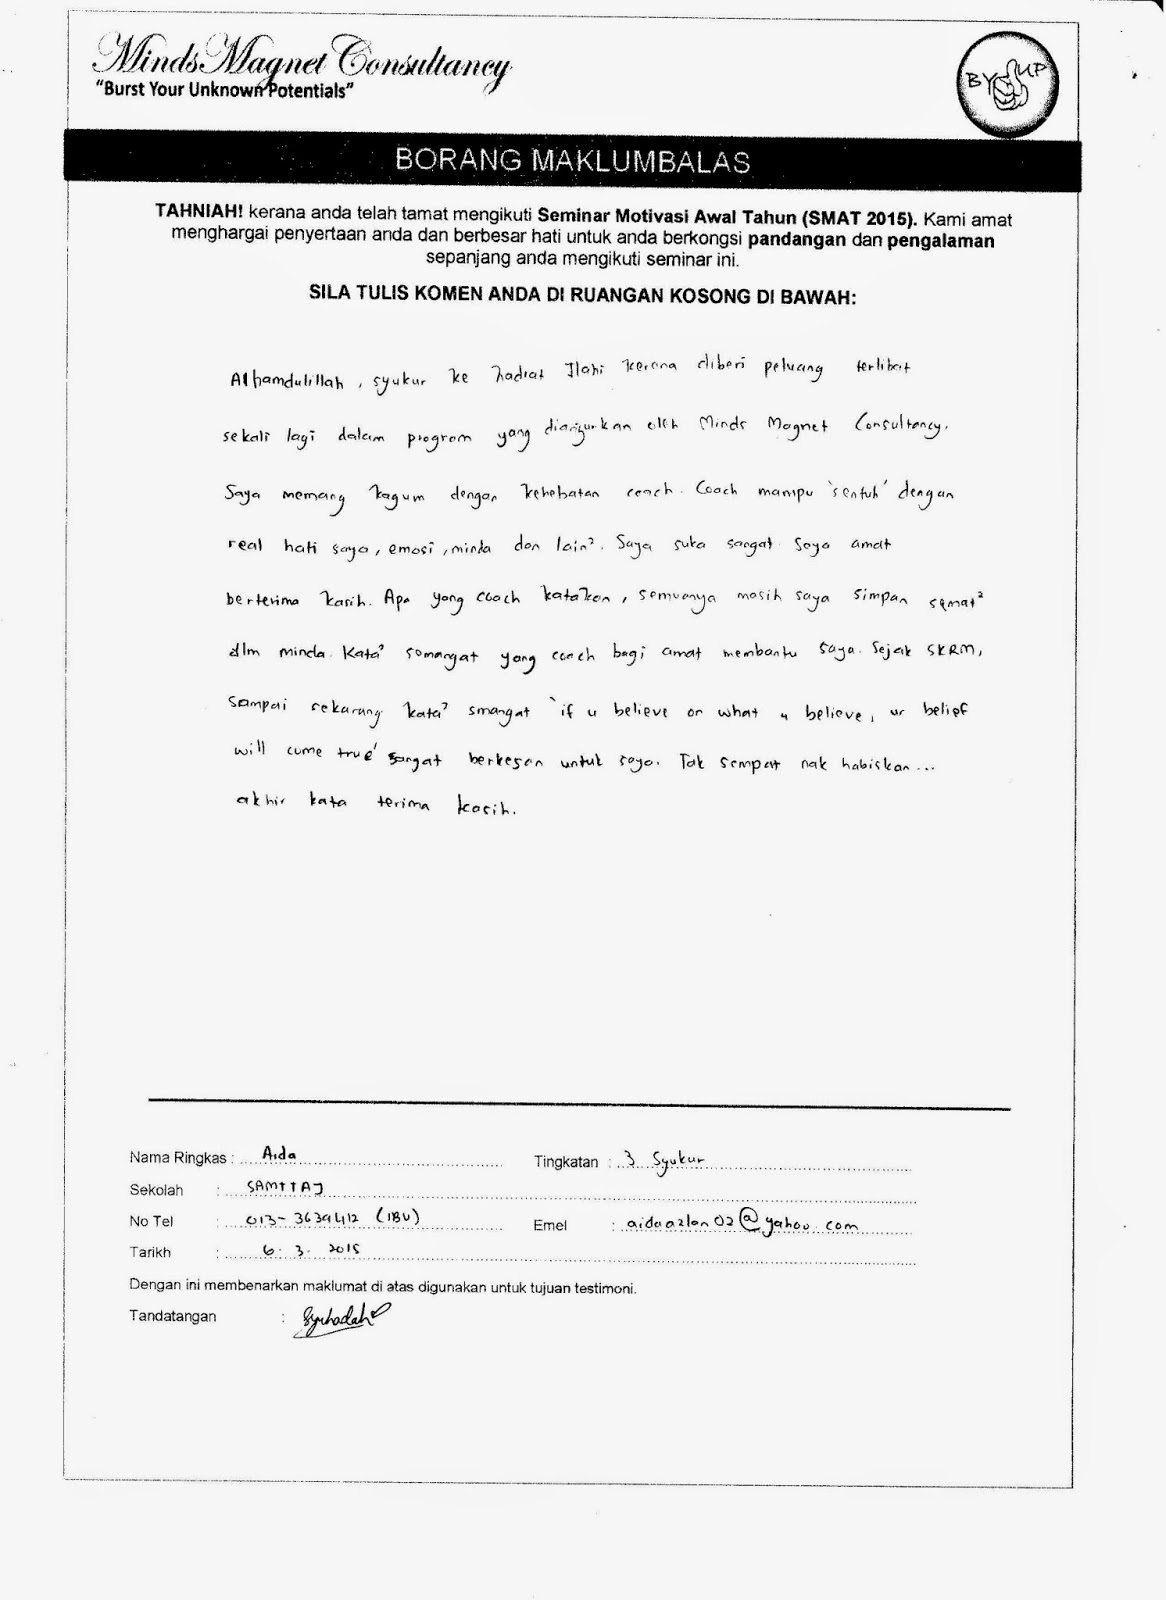 Minds Magnet Consultancy
"Burst Your Unknown Potentials"
BY UP
BORANG MAKLUMBALAS
TAHNIAH! kerana anda telah tamat mengikuti Seminar Motivasi Awal Tahun (SMAT 2015). Kami amat
menghargai penyertaan anda dan berbesar hati untuk anda berkongsi pandangan dan pengalaman
sepanjang anda mengikuti seminar ini.
SILA TULIS KOMEN ANDA DI RUANGAN KOSONG DI BAWAH:
Alhamdulillah, syukur ke hadrat Ilahi kerana diberi peluang terlibat
sekali lagi dalam program yang dianjurkan oleh Minds Magnet Consultancy.
Saya memang kagum dengan kehebatan coach. Coach mampu 'sentuh' dengan
real hati saya, emosi, minda dan lain². Saya suka sangat. Saya amat
berterima kasih. Apa yang coach katakan, semuanya masih saya simpan semat²
dlm minda. Kata² semangat yang coach bagi amat membantu saya. Sejak SKRM,
sampai sekarang kata² smangat 'if u believe on what u believe, ur belief
will come true' sangat berkesan untuk saya. Tak sempat nak habiskan...
akhir kata terima kasih.
Nama Ringkas : Aida Tingkatan : 3 Syukur
Sekolah : SAMTTAJ
No Tel : 013-3639412 (IBU) Emel : aidaazlan02@yahoo.com
Tarikh : 6.3.2015
Dengan ini membenarkan maklumat di atas digunakan untuk tujuan testimoni.
Tandatangan : Syuhadah